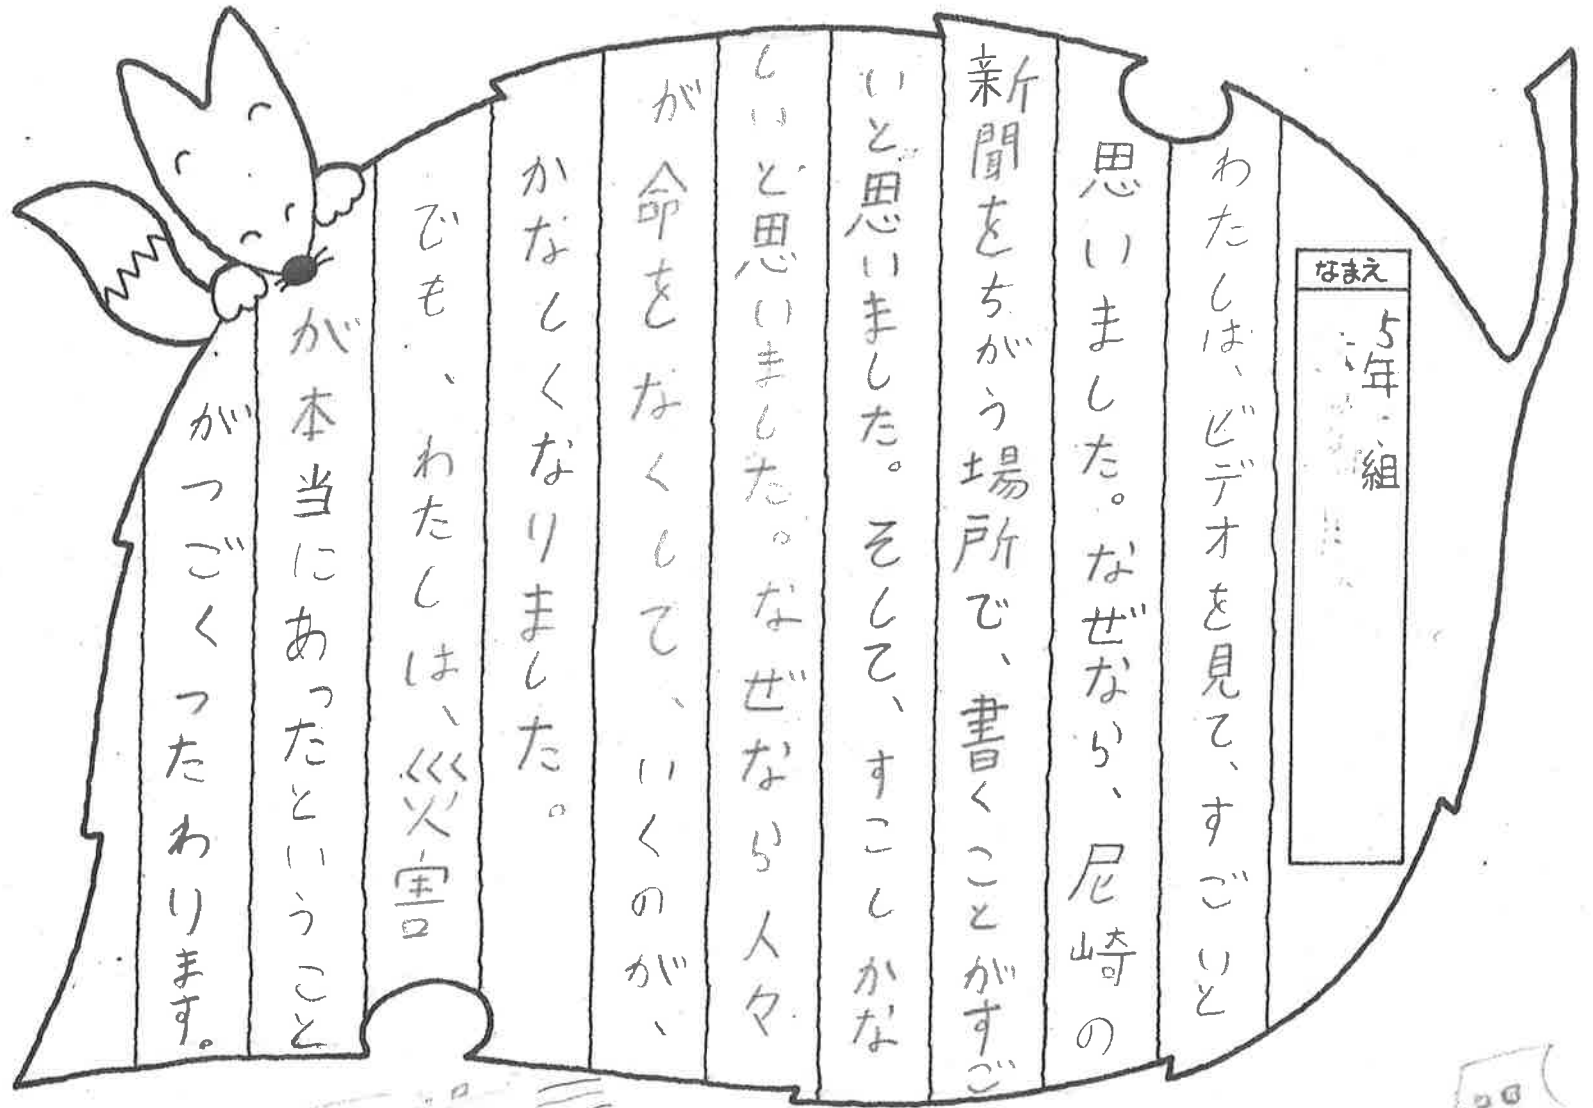 なまえ
5年 組
わたしは、ビデオを見て、すごいと
思いました。なぜなら、尼崎の
新聞をちがう場所で、書くことがすご
いと思いました。そして、すこしかな
しいと思いました。なぜなら人々
が命をなくして、いくのが、
かなしくなりました。
でも、わたしは、災害
が本当にあったということ
がつごくつたわります。